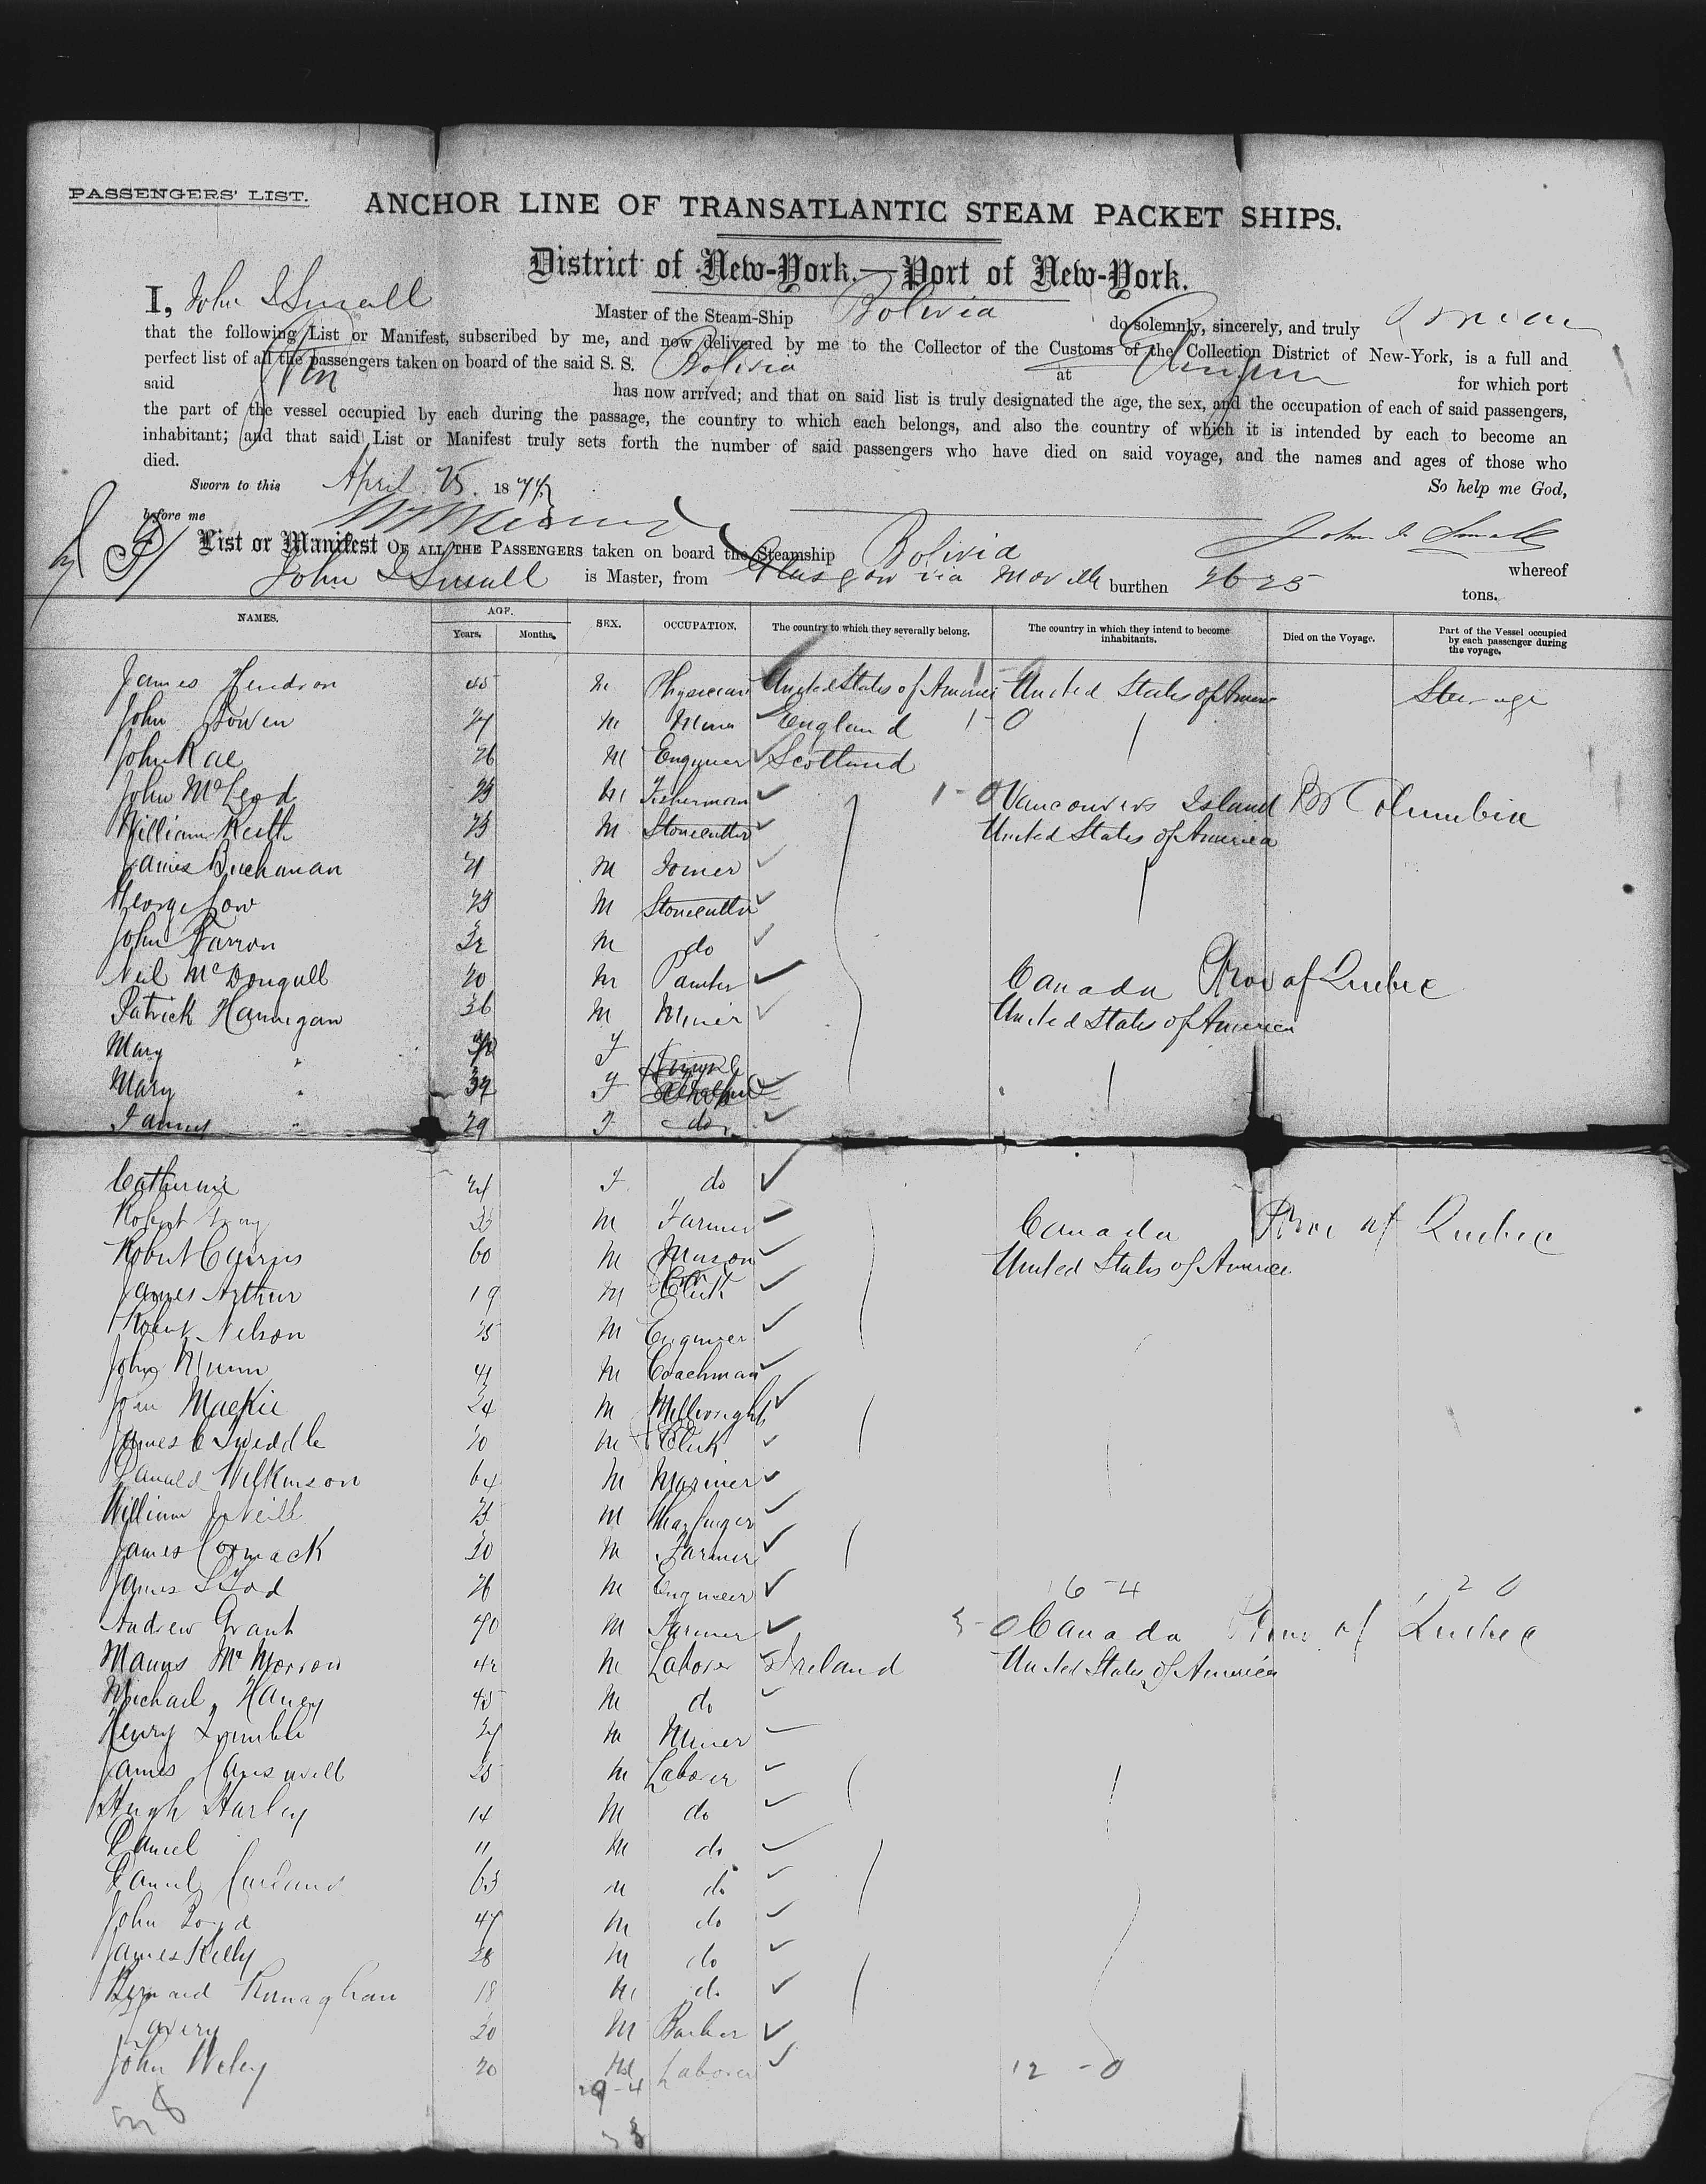 PASSENGERS' LIST.
ANCHOR LINE OF TRANSATLANTIC STEAM PACKET SHIPS.
District of New-York.—Port of New-York.
I, John S Small Master of the Steam-Ship Bolivia do solemnly, sincerely, and truly
that the following List or Manifest, subscribed by me, and now delivered by me to the Collector of the Customs of the Collection District of New-York, is a full and
perfect list of all the passengers taken on board of the said S. S. Bolivia at for which port
said has now arrived; and that on said list is truly designated the age, the sex, and the occupation of each of said passengers,
the part of the vessel occupied by each during the passage, the country to which each belongs, and also the country of which it is intended by each to become an
inhabitant; and that said List or Manifest truly sets forth the number of said passengers who have died on said voyage, and the names and ages of those who
died.
Sworn to this April 25. 1877 So help me God,
before me John S Small
List or Manifest OF ALL THE PASSENGERS taken on board the Steamship Bolivia whereof
John S Small is Master, from Glasgow via Moville burthen 2625 tons.
NAMES. AGE. Years. Months. SEX. OCCUPATION. The country to which they severally belong. The country in which they intend to become inhabitants. Died on the Voyage. Part of the Vessel occupied by each passenger during the voyage.
James Hendron 45 M Physician United States of America United States of America Steerage
John Bowen M Miner England 1-0
John Rae 26 M Engineer Scotland
John McLeod 23 M Fisherman 1-0 Vancouvers Island Br Columbia
William Keith 23 M Stonecutter United States of America
James Buchanan 21 M Joiner
George Low 23 M Stonecutter
John Farron 32 M do
Neil McDougall 20 M Painter Canada Prov of Quebec
Patrick Hannigan 36 M Miner United States of America
Mary " F
Mary " F
29 F do
Catherine F do
Robert M Farmer Canada Prov of Quebec
Robert Cairns 60 M Mason United States of America
James Arthur 19 M Clerk
Robert Nelson 25 M Engineer
John Munn M Coachman
John Mackie 24 M Millwright
James C Tweddle 20 M Clerk
Donald Wilkinson 64 M Mariner
William J Neill M Wharfinger
James Cormack 30 M Farmer
James 26 M Engineer 6-4 20
Andrew Grant 40 M Farmer 3-0 Canada Prov of Quebec
Manus McMorrow 42 M Laborer Ireland United States of America
Michael Haney 45 M do
Henry M Miner
James M Laborer
Hugh Harley 14 M do
Daniel 11 M do
Daniel 63 M do
John 47 M do
James Kelly 28 M do
Bernard 18 M do
M Barber
John 20 M Laborer 12-0
29-4